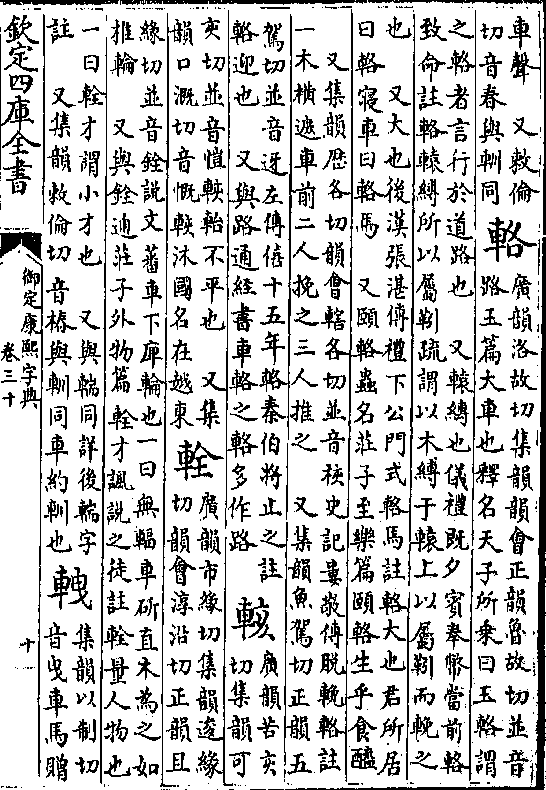 車聲 又敕倫
切音春與輴同
輅
廣韻洛故切集韻韻會正韻魯故切並音
路玉篇大車也釋名天子所乘曰玉輅謂
之輅者言行於道路也 又轅縛也儀禮既夕賓奉幣當前輅
致命註輅轅縛所以屬靷疏謂以木縛于轅上以屬靷而輓之
也 又大也後漢張湛傳禮下公門式輅馬註輅大也君所居
曰輅寢車曰輅馬 又頤輅蟲名莊子至樂篇頤輅生乎食醯
又集韻歴各切韻會轄各切並音核史記婁敬傳脫輓輅註
一木橫遮車前二人挽之三人推之 又集韻魚駕切正韻五
駕切並音迓左傳僖十五年輅秦伯將止之註
輅迎也 又與路通經書車輅之輅多作路
輆
廣韻苦亥
切集韻可
亥切並音愷輆軩不平也 又集
韻口溉切音慨輆沐國名在越東
輇
廣韻市緣切集韻逡緣
切韻會淳沿切正韻且
緣切並音銓說文蕃車下庳輪也一曰無輻車斫直木為之如
椎輪 又與銓通莊子外物篇輇才諷說之徒註輇量人物也
一曰輇才謂小才也 又與輲同詳後輲字
註 又集韻敕倫切音椿與輴同車約輴也
集韻以制切
音曳車馬贈
欽定四庫全書
御定康熙字典
卷三十
十